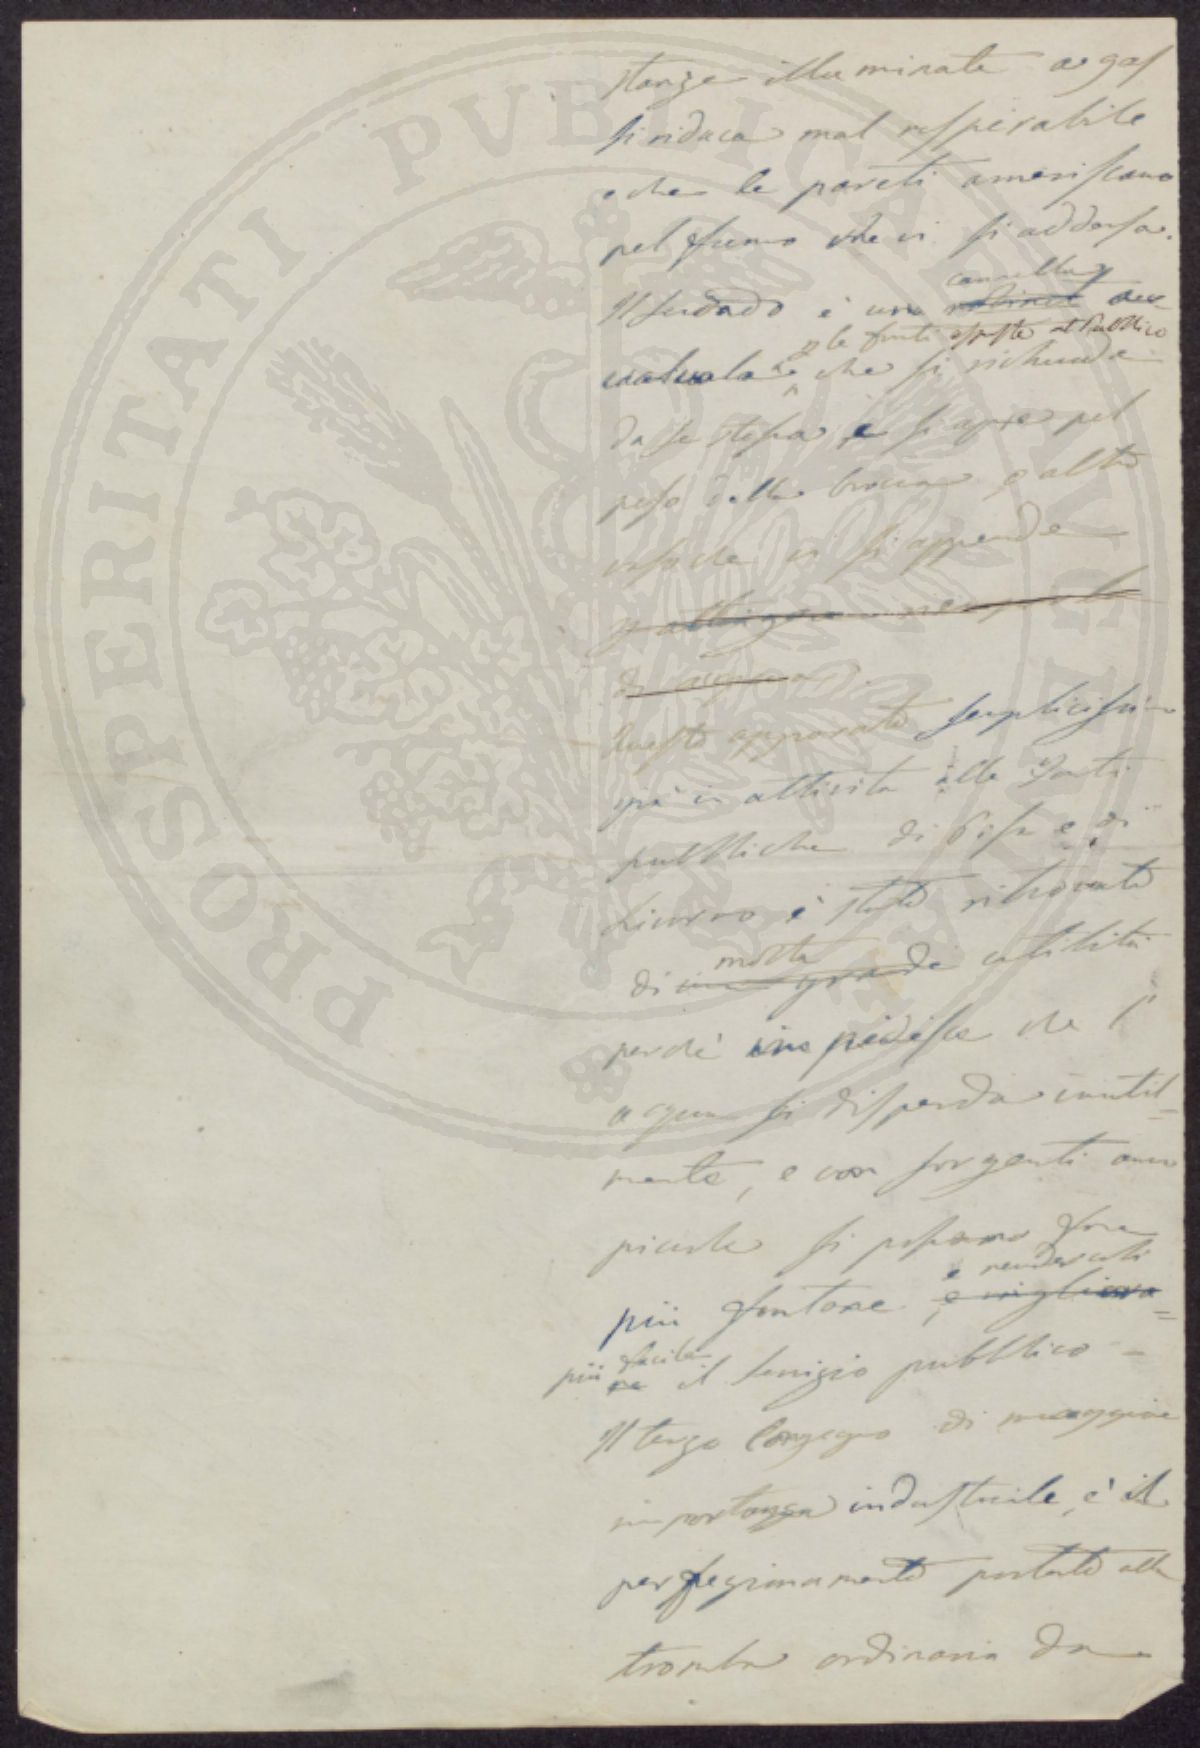 stanze illuminate a gas
si riduca mal respirabile
e che le pareti anneriscano
pel fumo che vi si addossa.
cannella
Il secondo è una robinet a
ple fonti esposte al Pubblico
valvola che si richiude
da se stessa, e si apre pel
peso della brocca o altro
vaso che vi si appende
di acqua
Questo apparato semplicissimo
già in attività alle Fonti
pubbliche di Pisa e di
Livorno è stato ritrovato
molta
di una grande utilità
perchè impedisce che l'
acqua si disperda inutil=
mente, e con sorgenti anco
piccole si possono fare
e render così
più fontane, e migliora=
più facile
re il servizio pubblico -
Il terzo congegno di maggiore
importanza industriale, è il
perfezionamento portato alla
tromba ordinaria da
PROSPERITATI PVBLICAE AVGENDAE